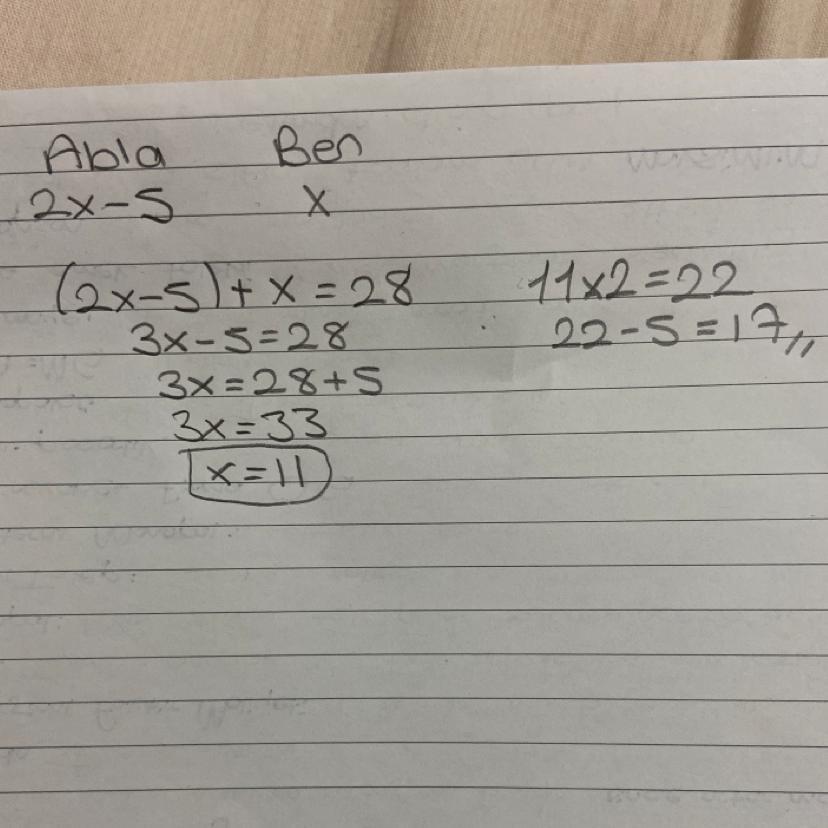 Abla Ben
2x-5 x
(2x-5)+x=28
3x-5=28
3x=28+5
3x=33
x=11
11x2=22
22-5=17,,